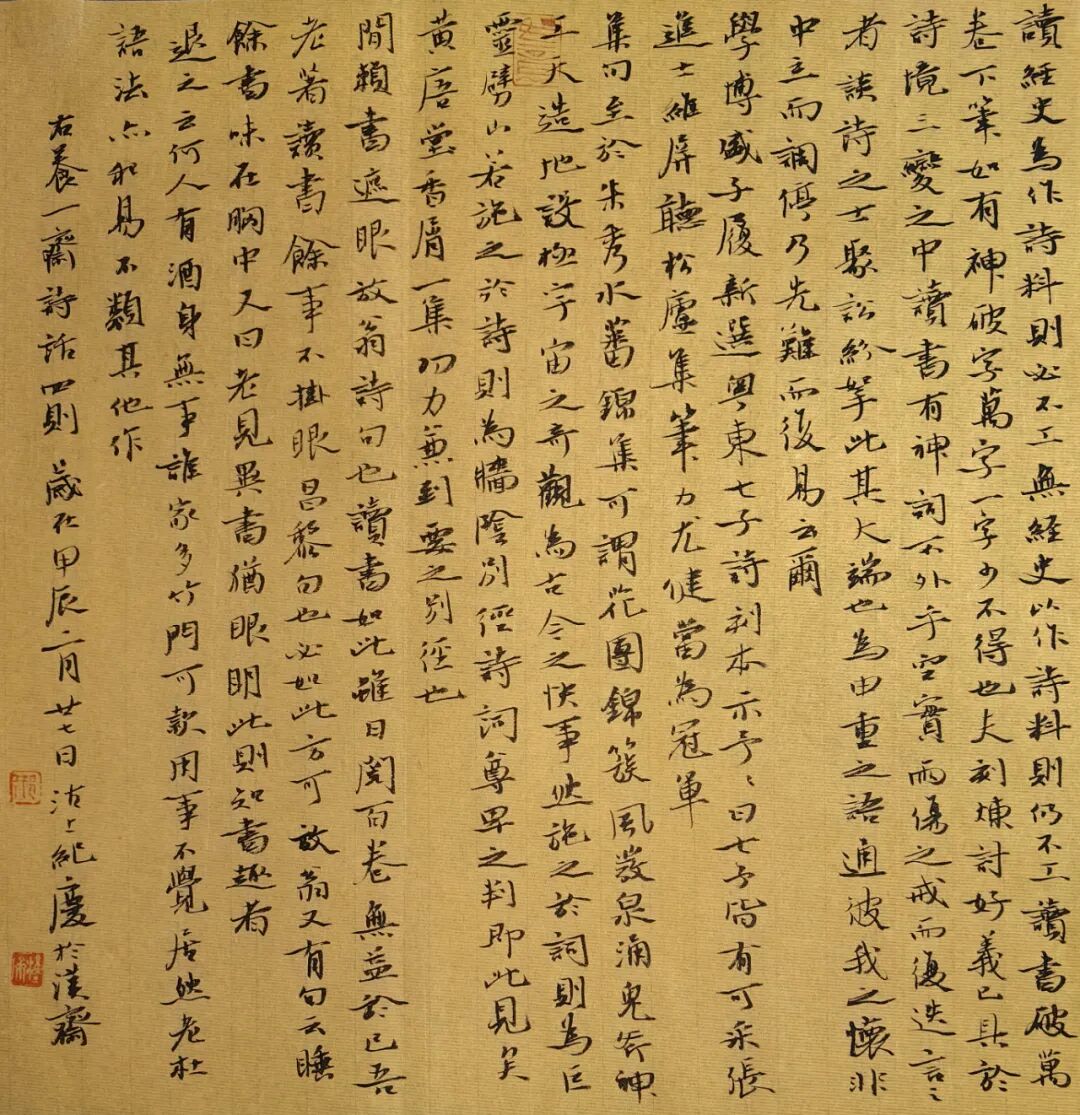 讀經史為作詩料則必不工無經史以作詩料則仍不工讀書破萬
卷下筆如有神破字萬字一字少不得也夫刻煉討好義已具於
詩境三變之中讀書有神詞不外乎空實兩傷之戒而復迭言之
者談詩之士聚訟紛拏此其大端也為申重之語通彼我之懷非
中立而調停乃先難而後易云爾
學博盛子履新選粵東七子詩刻本示予予曰七子皆有可采張
進士維屏聽松廬集筆力尤健當為冠軍
集句至於朱秀水蕃錦集可謂花團錦簇風發泉涌鬼斧神
工天造地設極宇宙之奇觀為古今之快事然施之於詞則為巨
靈劈山若施之於詩則為牆陰別徑詩詞尊卑之判即此見矣
黃唐堂香屑一集功力兼到要之別徑也
閒賴書遮眼放翁詩句也讀書如此雖日閱百卷無益於己吾
老著讀書餘事不掛眼昌黎句也必如此方可放翁又有句云睡
餘書味在胸中又曰老見異書猶眼明此則知書趣者
退之云何人有酒身無事誰家多竹門可款用事不覺居然老杜
語法亦和易不類其他作
右養一齋詩話四則 歲在甲辰二月廿七日沽上紀慶於漢齋